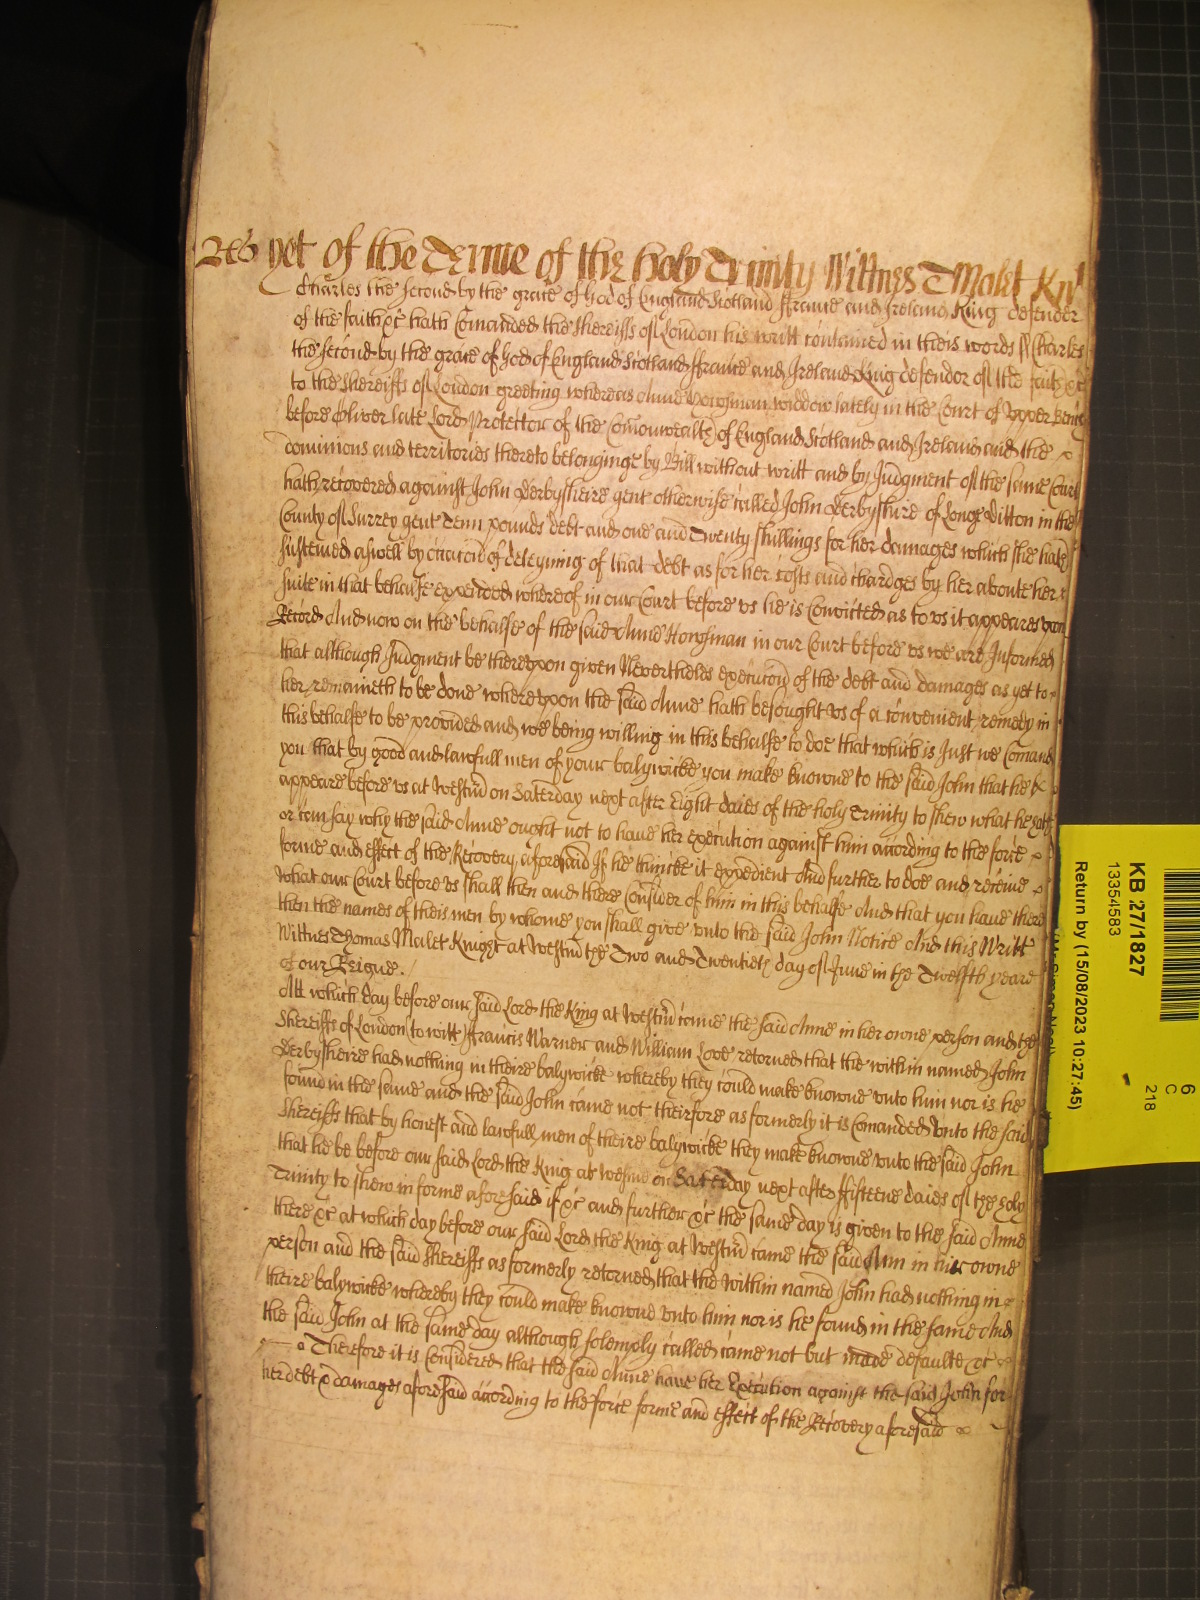 yet of the Terme of the holy Trinity Wittnes T Malet Knt
Charles the second by the grace of God of England Scotland ffrance and Ireland King defender
of the faith &c hath Comanded the Shereiffs of London his writt contained in theis words ss Charles
the second by the grace of God of England Scotland ffrance and Ireland King defendor of the faith &c
to the Shereiffs of London greeting whereas Anne Horssman widdow lately in the Court of Vpper Bench
before Oliver late Lord Protettor of the Comonwealth of England Scotland and Ireland and the
dominions and territories thereto belonginge by Bill without writt and by Judgment of the same Court
hath recovered against John Derbysheire gent otherwise called John Derbyshire of Longe Ditton in the
County of Surrey gent Tenn pounds debt and one and Twenty shillings for her damages which she hath
susteined aswell by occacon of deteyning of that debt as for her costs and chardges by her aboute her
suite in that behalfe expended whereof in our Court before vs he is Convicted as to vs it appeares vpon
Record And now on the behalfe of the said Anne Horssman in our Court before vs we are Informed
that although Judgment be therevpon given Nevertheles execucon of the debt and damages as yet to
her remaineth to be done wherevpon the said Anne hath besought vs of a convenient remedy in
this behalfe to be provided and we being willing in this behalfe to doe that which is Just we Comand
you that by good and lawfull men of your balywicke you make knowne to the said John that he
appeare before vs at Westm on Saterday next after Eight daies of the holy Trinity to shew what he hath
or can say why the said Anne ought not to haue her execution against him according to the force
forme and effect of the Recovery aforesaid If he thincke it expedient And further to doe and receive
what our Court before vs shall then and there Consider of him in this behalfe And that you haue there
then the names of theis men by whome you shall give vnto the said John Notice And this Writt
Wittnes Thomas Malet Knight at Westm the Two and Twentieth day of June in the Twelfth yeare
of our Reigne.
Att which day before our said Lord the King at Westm came the said Anne in her owne person and the
Shereiffs of London (to witt) ffrancis Warner and William Love retorned that the within named John
Derbysheire had nothing in theire balywicke whereby they could make knowne vnto him nor is he
found in the same and the said John came not theirfore as formerly it is Comanded vnto the said
Shereiffs that by honest and lawfull men of theire balywicke they make knowne vnto the said John
that he be before our said Lord the King at Westm on Saterday next after ffifteene daies of the holy
Trinity to shew in forme aforesaid if &c and further &c the same day is given to the said Anne
there &c at which day before our said Lord the King at Westm came the said Ann in her owne
person and the said Shereiffs as formerly retorned that the within named John had nothing in
theire balywicke whereby they could make knowne vnto him nor is he found in the same And
the said John at the same day although solemply called came not but made defaulte &c
Therefore it is Considered that the said Anne have her Execution against the said John for
her debt & damages aforesaid according to the force forme and effect of the Recovery aforesaid
KB 27/1827
13354583
Return by (15/08/2023 10:27:45)
6
C
218